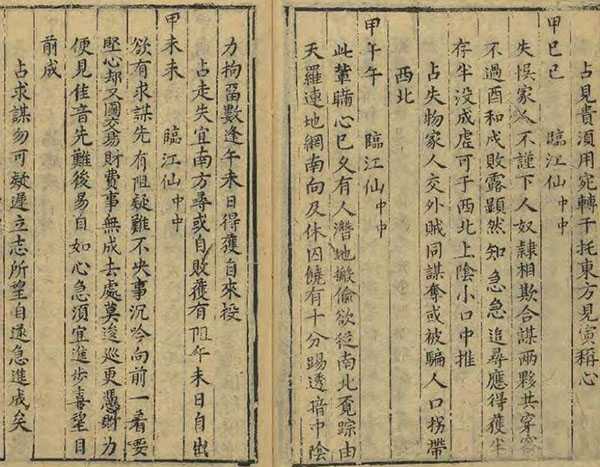 占見貴須用宛轉于托東方見寔稱心
甲巳巳　臨江仙中中
失悞家人不謹下人奴隸相欺合謀兩夥共穿窬
不過酉和戌敗露顯然知急急追尋應得獲半
存半没成虚可于西北上陰小口中推
占失物家人交外賊同謀奪或被騙人口拐帶
西北
甲午午　臨江仙中中
此輩瞞心已久有人潛地搬偷欲從南北覓踪由
天羅連地網南向及休囚饒有十分踢透暗中陰
力拘畱數逢午未日得獲自來投
占走失宜南方尋或自敗獲有阻午未日自出
甲未未　臨江仙中中
欲有求謀先有阻疑難不决事沉吟向前一看要
堅心却又圖交易財費事無成去處莫逡巡更憑財力
便見佳音先難後易自如心急須宜進步喜望目
前成
占求謀勿可疑遲立志所望自遂急進成矣